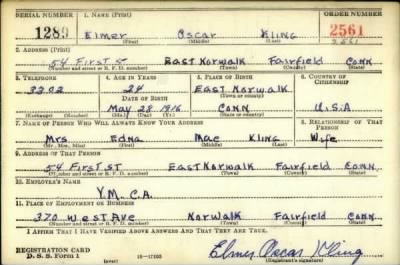 SERIAL NUMBER 1. NAME (Print) ORDER NUMBER
1289 Elmer Oscar Kling 2561
(First) (Middle) (Last) 2561
2. ADDRESS (Print)
54 First St East Norwalk Fairfield Conn
(Number and street or R. F. D. number) (Town) (County) (State)
3. TELEPHONE 4. AGE IN YEARS 5. PLACE OF BIRTH 6. COUNTRY OF CITIZENSHIP
3202 24 East Norwalk
DATE OF BIRTH (Town or county)
May 28 1916 Conn U.S.A
(Exchange) (Number) (Mo.) (Day) (Yr.) (State or country)
7. NAME OF PERSON WHO WILL ALWAYS KNOW YOUR ADDRESS 8. RELATIONSHIP OF THAT PERSON
Mrs Edna Mae Kling Wife
(Mr., Mrs., Miss) (First) (Middle) (Last)
9. ADDRESS OF THAT PERSON
54 First St East Norwalk Fairfield Conn.
(Number and street or R. F. D. number) (Town) (County) (State)
10. EMPLOYER'S NAME
Y.M.C.A.
11. PLACE OF EMPLOYMENT OR BUSINESS
370 West Ave Norwalk Fairfield Conn
(Number and street or R. F. D. number) (Town) (County) (State)
I AFFIRM THAT I HAVE VERIFIED ABOVE ANSWERS AND THAT THEY ARE TRUE.
REGISTRATION CARD
D. S. S. Form 1 (over) Elmer Oscar Kling
(Registrant's signature)